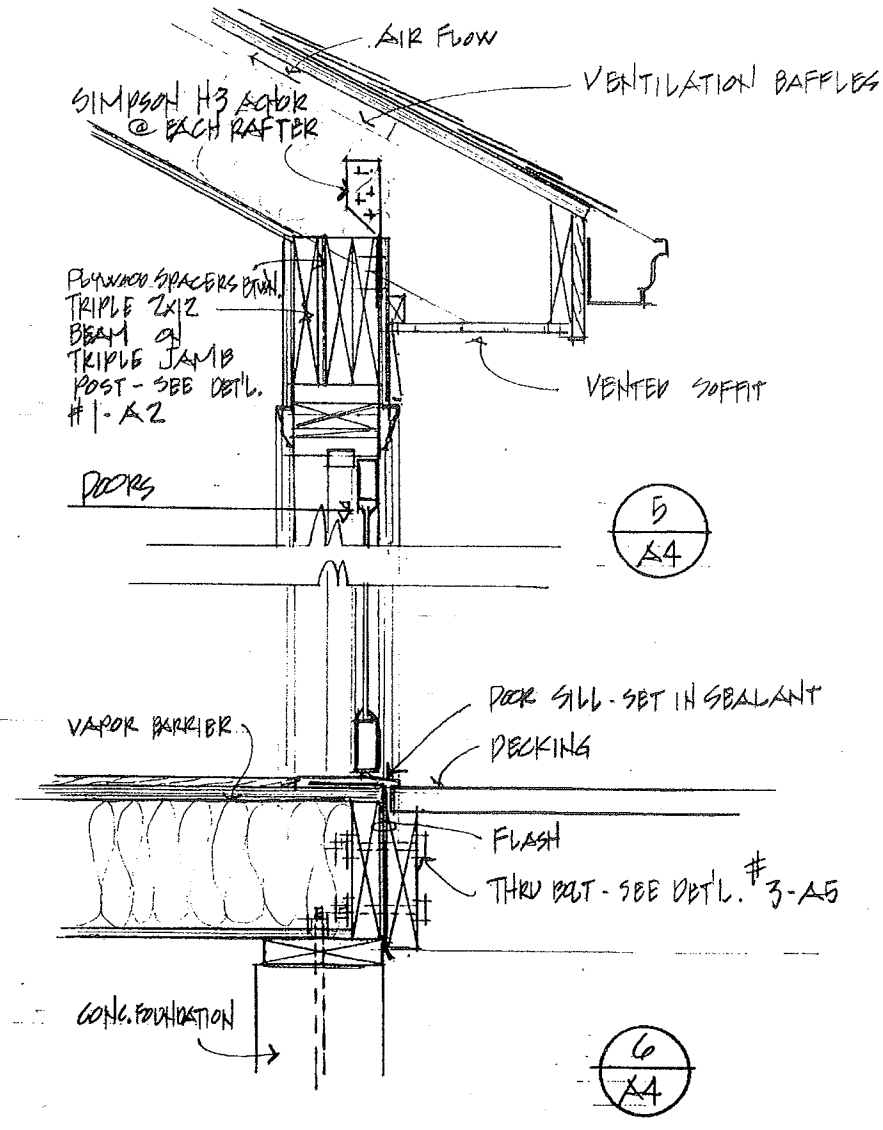 AIR FLOW
VENTILATION BAFFLES
SIMPSON H3 ACHOR
@ EACH RAFTER
PLYWOOD SPACERS BTWN.
TRIPLE 2x12
BEAM ON
TRIPLE JAMB
POST - SEE DET'L.
#1-A2
VENTED SOFFIT
DOORS
5
A4
DOOR SILL - SET IN SEALANT
VAPOR BARRIER
DECKING
FLASH
THRU BOLT - SEE DET'L. #3-A5
CONC. FOUNDATION
6
A4